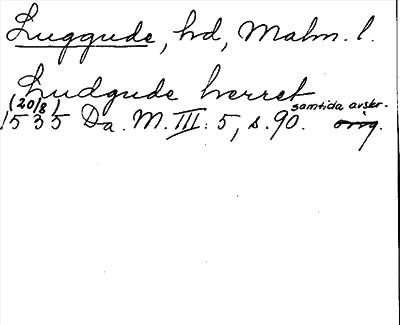 Luggude, hd, Malm. l.
Ludgude herret
(20/8) samtida avskr.
1535 Da. M. III: 5, s. 90. orig.